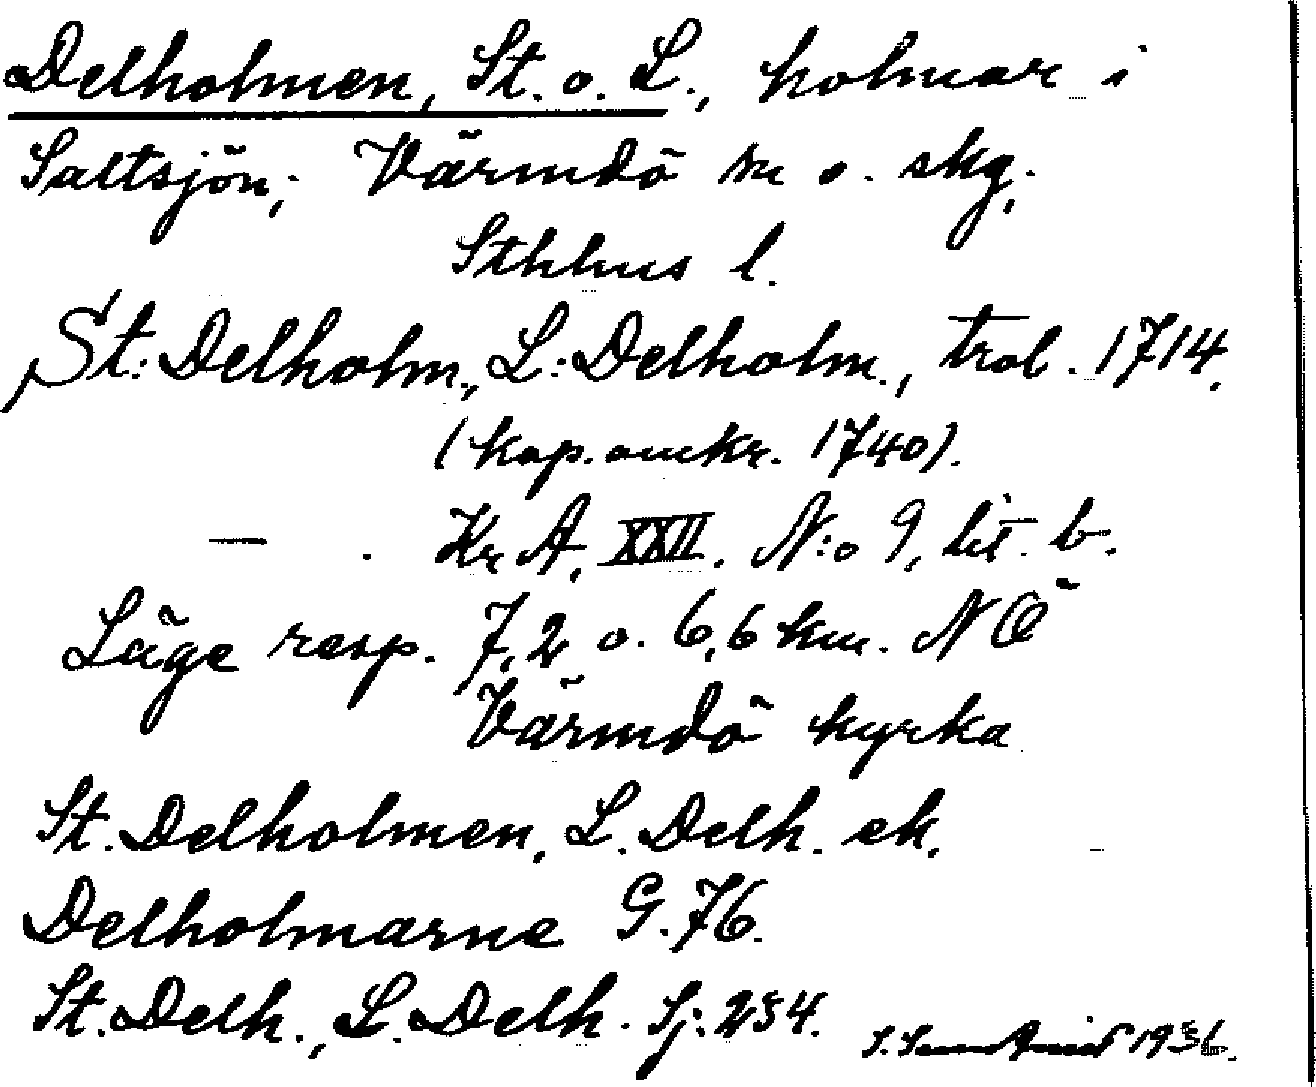 Delholmen, St. o. L., holmar i
Saltsjön; Värmdö sn o. skg;
Sthlms l.
St: Delholm, L: Delholm, trol. 1714.
(kop. omkr. 1740).
— . Kr A, XXII. N:o 9, lit. b.
Läge resp. 7,2 o. 6,6 km. NÖ
Värmdö kyrka
St. Delholmen, L. Delh. ek.
Delholmarne G. 76.
St. Delh., L. Delh. Sj. 234.
1936.